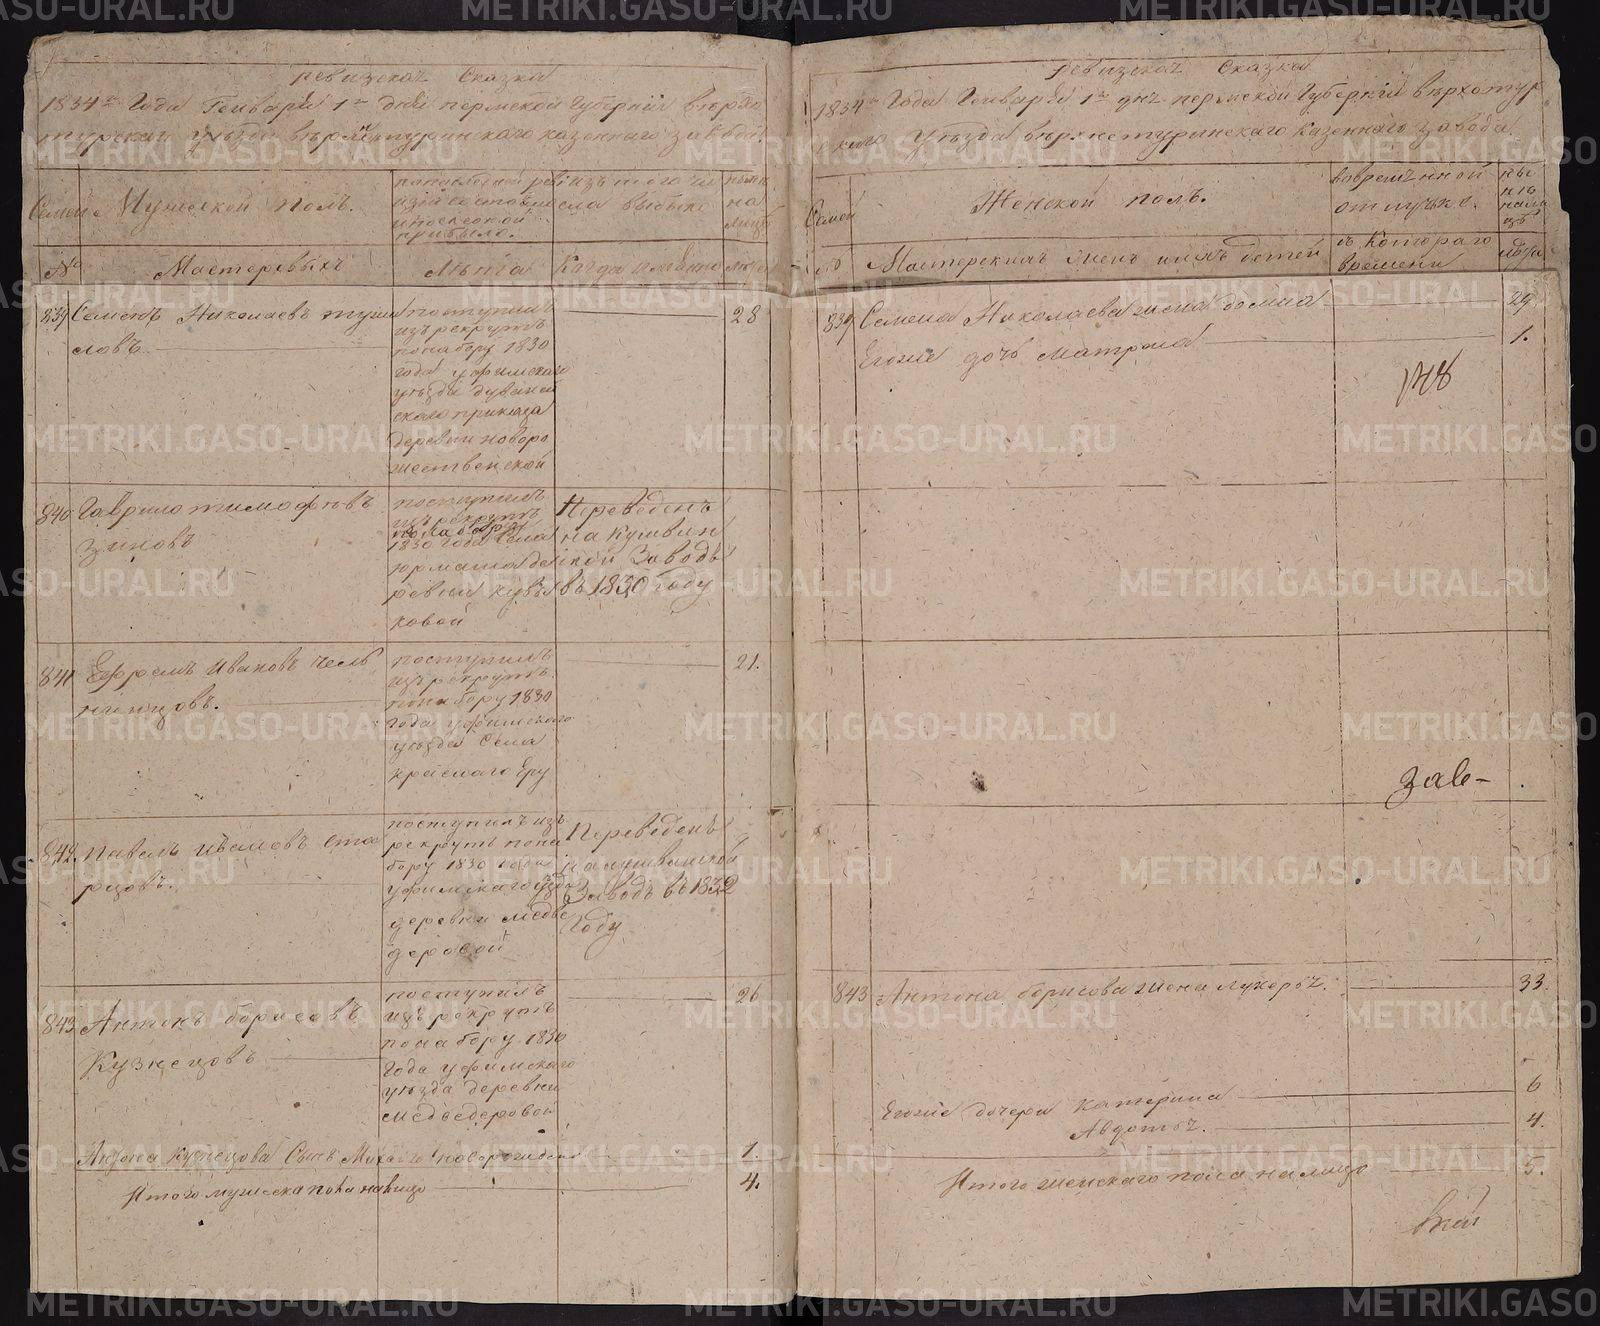 ревизскаѧ Сказка
1834го Года Генваря 1го дня пермской Губернии верхо
турскаго уѣзда верхнетуринскаго казеннаго завода
Семей
Мужеской полъ.
по последней ревизіи
состояло
и после оной
прибыло.
изъ того чи
сла выбыло
ныне
на
лицо
№
Мастеровыхъ
Лѣта
Когда именно
лѣта
839
Семенъ Николаевъ
ловъ.
поступилъ
изъ рекрутъ
по набору 1830
года уфимскаго
уѣзда дуваней
скаго приказа
деревни новоро
жественской
28
840
Гаврило тимофѣевъ
зиновъ
поступилъ
изъ рекрутъ
по набору
1830 года села
деревни
ковой
Переведенъ
на кушвин
ской Заводъ
въ 1830 году
841
Ефремъ Ивановъ
поступилъ
изъ рекрутъ.
по набору 1830
года уфимскаго
уѣзда Села
краснаго Яру
21.
842.
павелъ ивановъ
поступилъ изъ
рекрутъ по на
бору 1830 года
уфимскаго
деревни медве
деровой
Переведенъ
на кушвинской
Заводъ въ 1832
Году
843
Антонъ борисовъ
Кузнецовъ
поступилъ
изъ рекрутъ
по набору 1830
года уфимскаго
уѣзда деревни
медведеровой
26
Антона кузнецова Сынъ Михайло новорожденой
1.
Итого мужеска пола налицо
4.
ревизскаѧ Сказка
1834го Года Генваря 1го дня пермской Губерніи верхотур
скаго уѣзда верхнетуринскаго казеннаго завода
Семей
Женской полъ.
во временной
отлучке.
ны
нѣ
нали
цѣ
№
Мастерскихъ женъ и ихъ детей
съ Котораго
времени
лѣта
839
Семена Николаева жена домна
29
Егоже дочь матрона
1.
148
зав-
843
Антона борисова жена лукерья.
33.
Егоже дочери катерина
6
Авдотья.
4.
Итого женскаго пола налицо
5.
METRIKI.GASO-URAL.RU